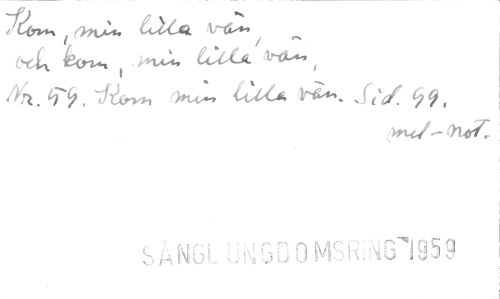 Kom, min lilla vän,
och kom, min lilla vän,
Nr. 59. Kom min lilla vän. Sid. 99.
mel-not.
SÅNGL UNGDOMSRING 1959